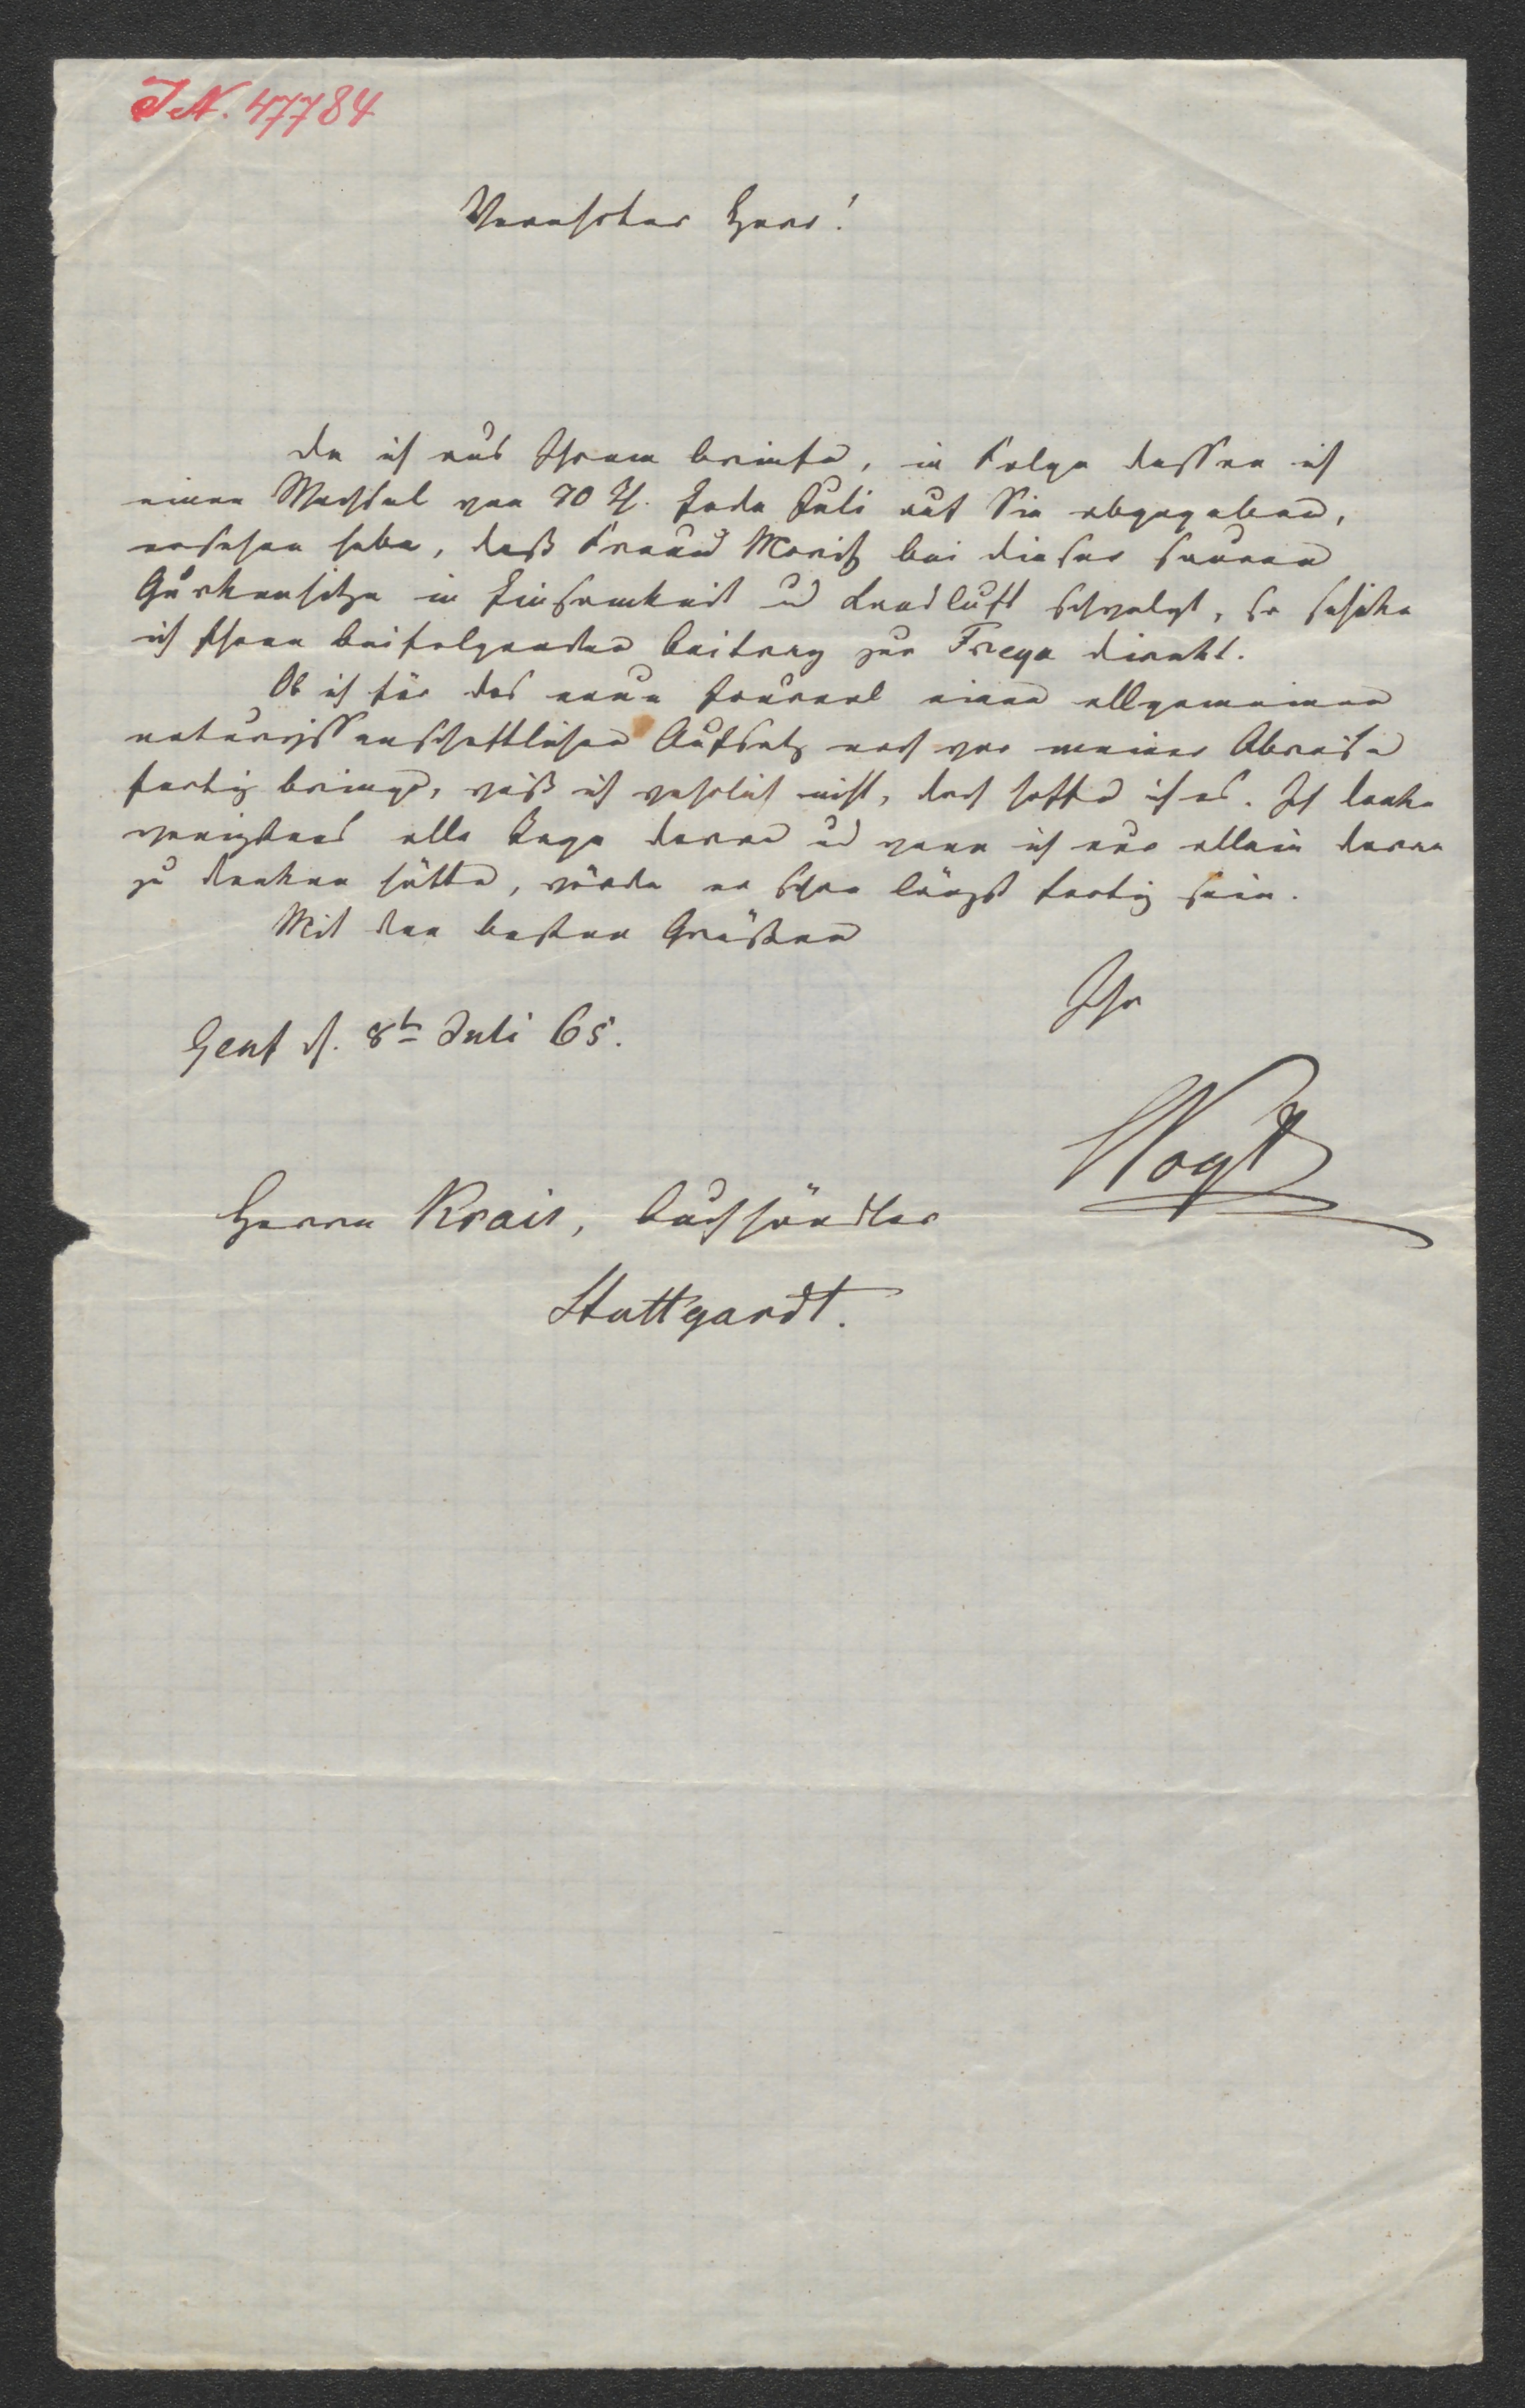 J.N. 47784
Verehrter Herr!
Da ich aus Ihrem Briefe, in Folge dessen ich
einen Wechsel von 70 Th. Ende Juli auf Sie abgegeben,
ersehen habe, daß Freund Moritz bei dieser sauren
Gurkenhitze in Einsamkeit u Landluft schwelgt, so schicke
ich Ihnen beifolgenden Beitrag zur Freya direkt.
Ob ich für das neue Journal einen allgemeinen
naturwissenschaftlichen Aufsatz noch vor meiner Abreise
fertig bringe, weiß ich wahrlich nicht, doch hoffe ich es. Ich denke
wenigstens alle Tage daran u wenn ich nur allein daran
zu denken hätte, würde er schon längst fertig sein.
Mit den besten Grüßen
Ihr
Genf d. 8t Juli 65.
CVogt
Herrn Krais, Buchhändler
Stuttgardt.